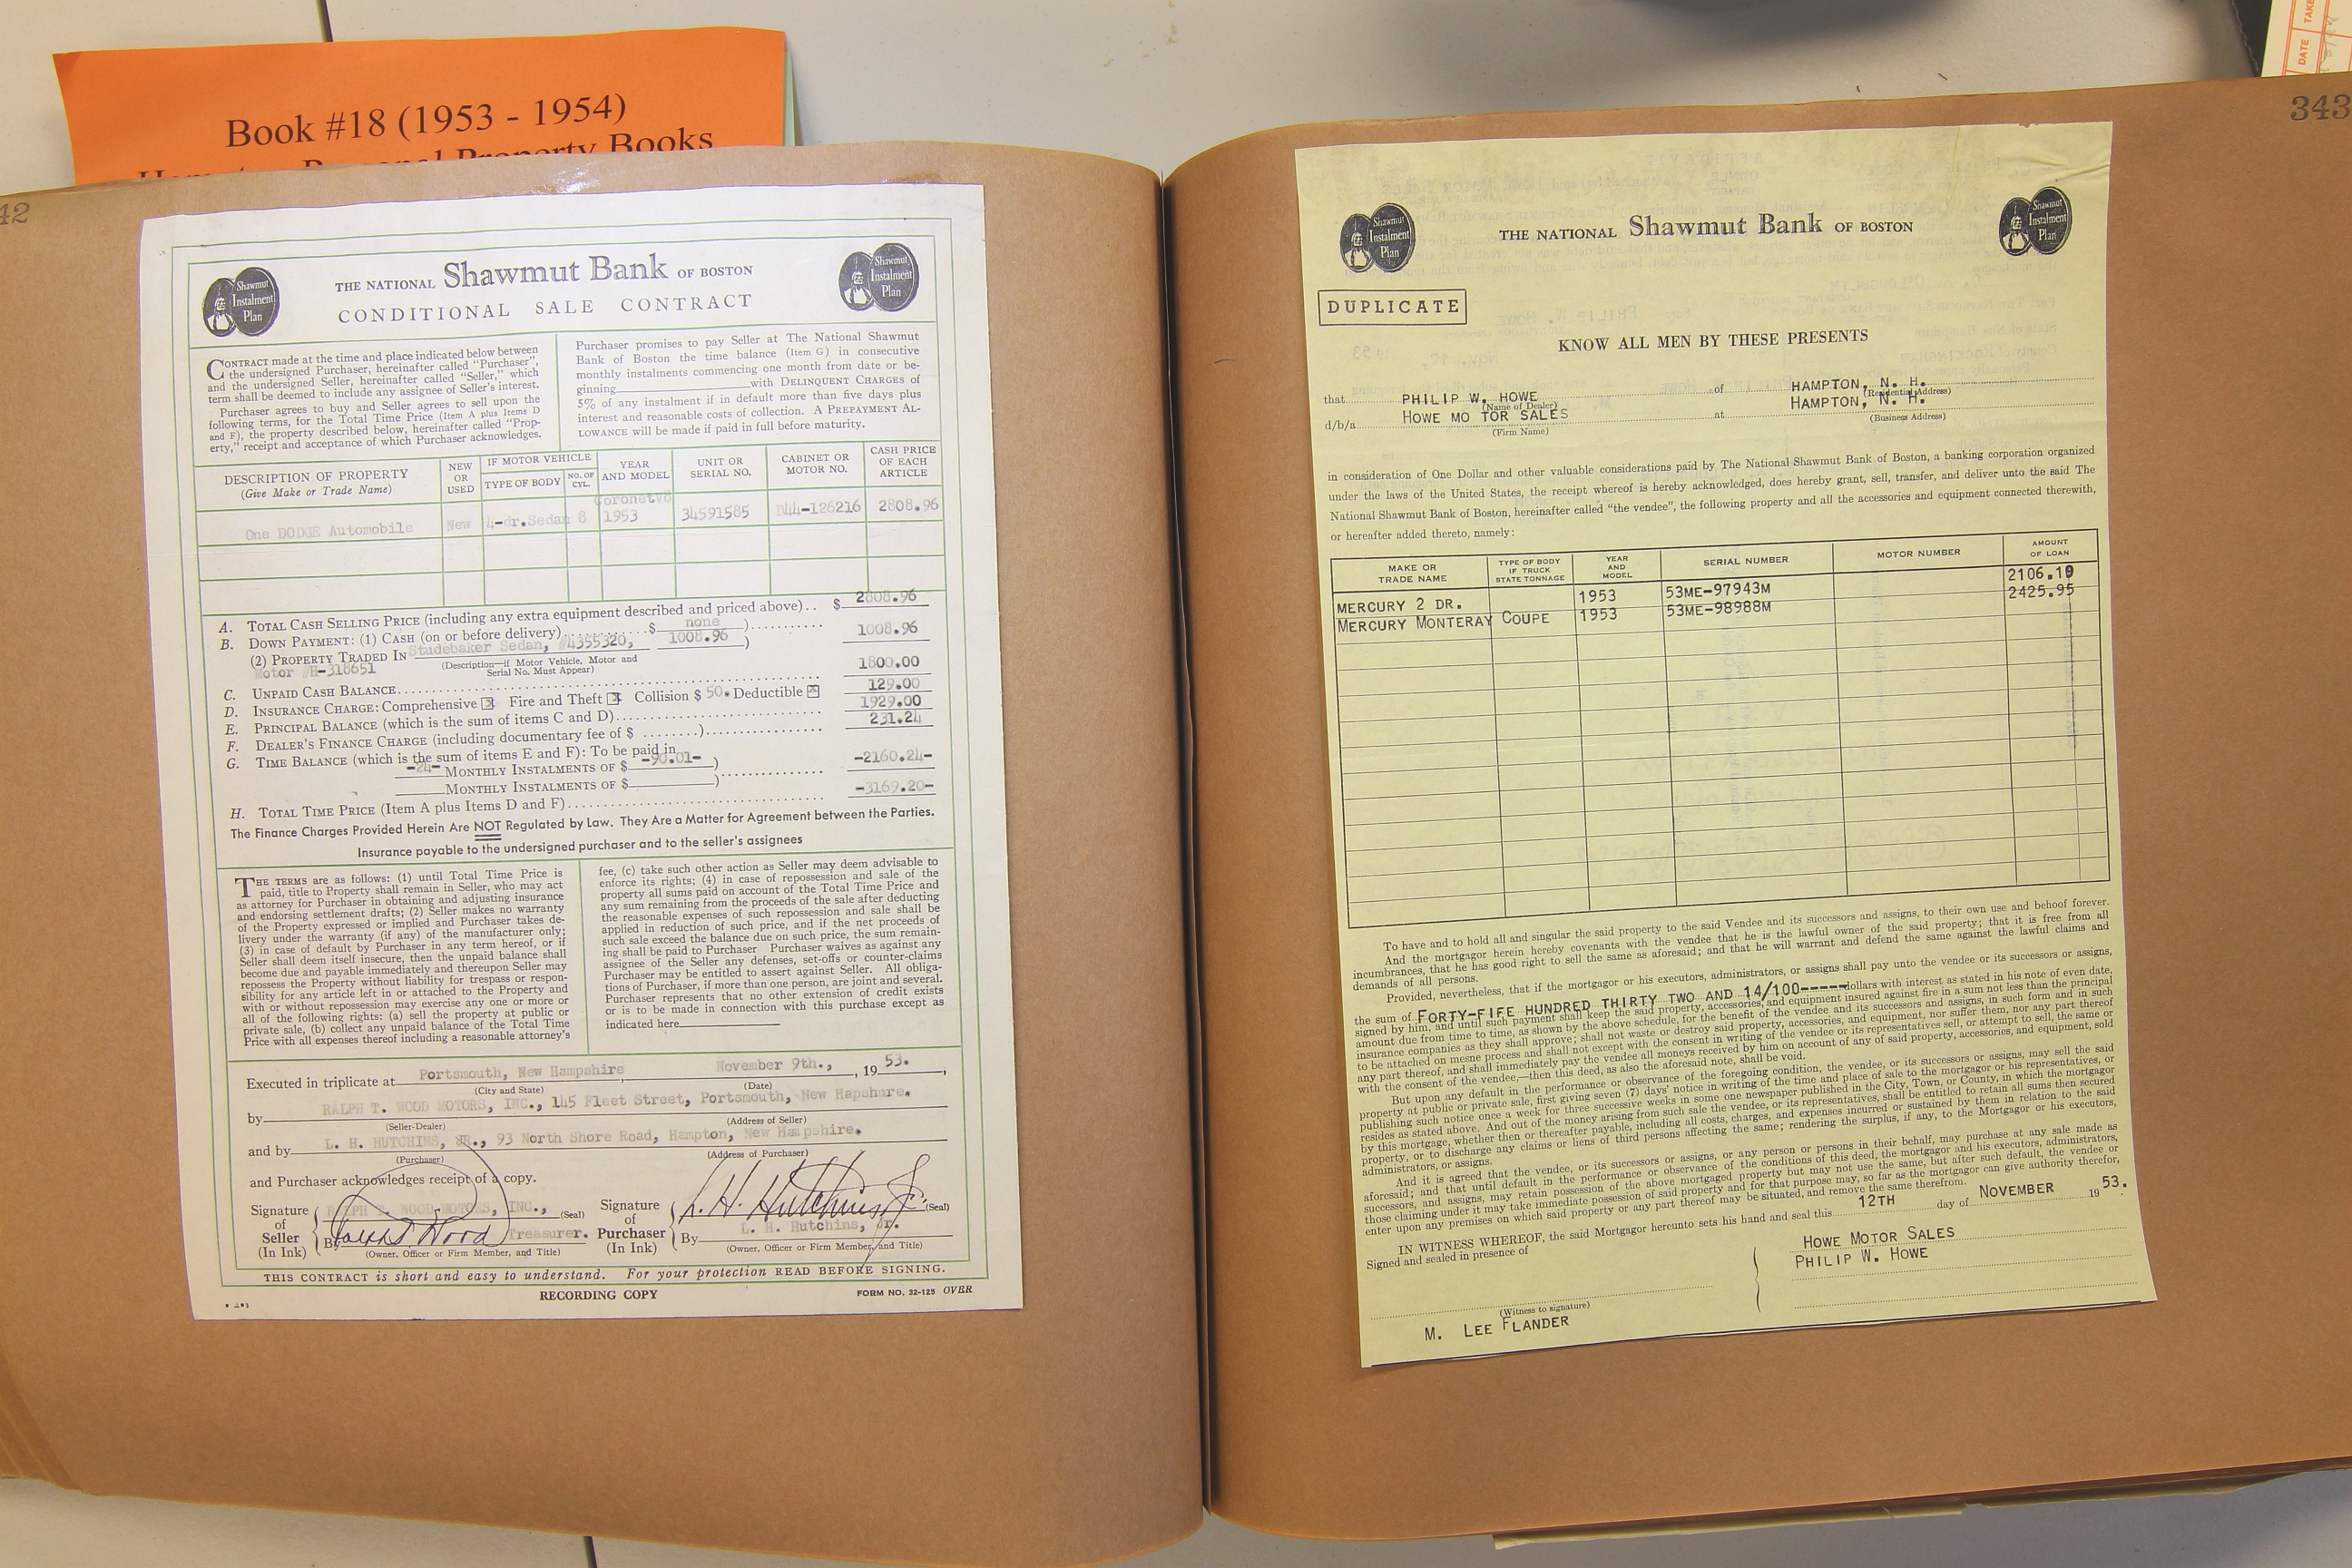 Book #18 (1953 - 1954)
Personal Property Books
42
Shawmut Instalment Plan
THE NATIONAL Shawmut Bank OF BOSTON
CONDITIONAL SALE CONTRACT
Shawmut Instalment Plan
CONTRACT made at the time and place indicated below between
the undersigned Purchaser, hereinafter called "Purchaser",
and the undersigned Seller, hereinafter called "Seller," which
term shall be deemed to include any assignee of Seller's interest.
Purchaser agrees to buy and Seller agrees to sell upon the
following terms, for the Total Time Price (Item A plus Items D
and F), the property described below, hereinafter called "Prop-
erty," receipt and acceptance of which Purchaser acknowledges.
Purchaser promises to pay Seller at The National Shawmut
Bank of Boston the time balance (Item G) in consecutive
monthly instalments commencing one month from date or be-
ginning with DELINQUENT CHARGES of
5% of any instalment if in default more than five days plus
interest and reasonable costs of collection. A PREPAYMENT AL-
LOWANCE will be made if paid in full before maturity.
DESCRIPTION OF PROPERTY (Give Make or Trade Name) NEW OR USED IF MOTOR VEHICLE TYPE OF BODY NO. OF CYL. YEAR AND MODEL UNIT OR SERIAL NO. CABINET OR MOTOR NO. CASH PRICE OF EACH ARTICLE
CoronetV8
One DODGE Automobile New 4-dr.Sedan 8 1953 34591585 D44-126216 2808.96
A. TOTAL CASH SELLING PRICE (including any extra equipment described and priced above).. $ 2808.96
B. DOWN PAYMENT: (1) CASH (on or before delivery) $ none )
(2) PROPERTY TRADED IN Studebaker Sedan, #4355320, 1008.96 ) 1008.96
Motor #H-318651 (Description—if Motor Vehicle, Motor and Serial No. Must Appear)
C. UNPAID CASH BALANCE 1800.00
D. INSURANCE CHARGE: Comprehensive x Fire and Theft x Collision $ 50. Deductible x 129.00
E. PRINCIPAL BALANCE (which is the sum of items C and D) 1929.00
F. DEALER'S FINANCE CHARGE (including documentary fee of $ ........) 231.24
G. TIME BALANCE (which is the sum of items E and F): To be paid in
-24- MONTHLY INSTALMENTS OF $ -90.01- ) -2160.24-
MONTHLY INSTALMENTS OF $ )
H. TOTAL TIME PRICE (Item A plus Items D and F) -3169.20-
The Finance Charges Provided Herein Are NOT Regulated by Law. They Are a Matter for Agreement between the Parties.
Insurance payable to the undersigned purchaser and to the seller's assignees
THE TERMS are as follows: (1) until Total Time Price is
paid, title to Property shall remain in Seller, who may act
as attorney for Purchaser in obtaining and adjusting insurance
and endorsing settlement drafts; (2) Seller makes no warranty
of the Property expressed or implied and Purchaser takes de-
livery under the warranty (if any) of the manufacturer only;
(3) in case of default by Purchaser in any term hereof, or if
Seller shall deem itself insecure, then the unpaid balance shall
become due and payable immediately and thereupon Seller may
repossess the Property without liability for trespass or respon-
sibility for any article left in or attached to the Property and
with or without repossession may exercise any one or more or
all of the following rights: (a) sell the property at public or
private sale, (b) collect any unpaid balance of the Total Time
Price with all expenses thereof including a reasonable attorney's
fee, (c) take such other action as Seller may deem advisable to
enforce its rights; (4) in case of repossession and sale of the
property all sums paid on account of the Total Time Price and
any sum remaining from the proceeds of the sale after deducting
the reasonable expenses of such repossession and sale shall be
applied in reduction of such price, and if the net proceeds of
such sale exceed the balance due on such price, the sum remain-
ing shall be paid to Purchaser Purchaser waives as against any
assignee of Seller any defenses, set-offs or counter-claims
Purchaser may be entitled to assert against Seller. All obliga-
tions of Purchaser, if more than one person, are joint and several.
Purchaser represents that no other extension of credit exists
or is to be made in connection with this purchase except as
indicated here
Executed in triplicate at Portsmouth, New Hampshire, November 9th., , 19 53. ,
(City and State) (Date)
by RALPH T. WOOD MOTORS, INC., 145 Fleet Street, Portsmouth, New Hapshure.
(Seller-Dealer) (Address of Seller)
and by L. H. HUTCHINS, JR., 93 North Shore Road, Hampton, New Hampshire.
(Purchaser) (Address of Purchaser)
and Purchaser acknowledges receipt of a copy.
Signature of Seller (In Ink) RALPH T. WOOD MOTORS, INC., (Seal)
By Ralph T. Wood Treasurer.
(Owner, Officer or Firm Member, and Title)
Signature of Purchaser (In Ink) L. H. Hutchins Jr. (Seal)
By L. H. Hutchins, Jr.
(Owner, Officer or Firm Member, and Title)
THIS CONTRACT is short and easy to understand. For your protection READ BEFORE SIGNING.
RECORDING COPY
FORM NO. 32-125 OVER
DATE
TAKE
343
Shawmut Instalment Plan
THE NATIONAL Shawmut Bank OF BOSTON
Shawmut Instalment Plan
DUPLICATE
KNOW ALL MEN BY THESE PRESENTS
that PHILIP W. HOWE of HAMPTON, N. H.
(Name of Dealer) (Residential Address)
d/b/a HOWE MO TOR SALES at HAMPTON, N. H.
(Firm Name) (Business Address)
in consideration of One Dollar and other valuable considerations paid by The National Shawmut Bank of Boston, a banking corporation organized
under the laws of the United States, the receipt whereof is hereby acknowledged, does hereby grant, sell, transfer, and deliver unto the said The
National Shawmut Bank of Boston, hereinafter called "the vendee", the following property and all the accessories and equipment connected therewith,
or hereafter added thereto, namely:
MAKE OR TRADE NAME TYPE OF BODY IF TRUCK STATE TONNAGE YEAR AND MODEL SERIAL NUMBER MOTOR NUMBER AMOUNT OF LOAN
MERCURY 2 DR. 1953 53ME-97943M 2106.19
MERCURY MONTERAY COUPE 1953 53ME-98988M 2425.95
To have and to hold all and singular the said property to the said Vendee and its successors and assigns, to their own use and behoof forever.
And the mortgagor herein hereby covenants with the vendee that he is the lawful owner of the said property; that it is free from all
incumbrances, that he has good right to sell the same as aforesaid; and that he will warrant and defend the same against the lawful claims and
demands of all persons.
Provided, nevertheless, that if the mortgagor or his executors, administrators, or assigns shall pay unto the vendee or its successors or assigns,
the sum of FORTY-FIFE HUNDRED THIRTY TWO AND 14/100----- dollars with interest as stated in his note of even date,
signed by him, and until such payment shall keep the said property, accessories, and equipment insured against fire in a sum not less than the principal
amount due from time to time, as shown by the above schedule, for the benefit of the vendee and its successors and assigns, in such form and in such
insurance companies as they shall approve; shall not waste or destroy said property, accessories, and equipment, nor suffer them, nor any part thereof
to be attached on mesne process and shall not except with the consent in writing of the vendee or its representatives sell, or attempt to sell, the same or
any part thereof, and shall immediately pay the vendee all moneys received by him on account of any of said property, accessories, and equipment, sold
with the consent of the vendee,—then this deed, as also the aforesaid note, shall be void.
But upon any default in the performance or observance of the foregoing condition, the vendee, or its successors or assigns, may sell the said
property at public or private sale, first giving seven (7) days' notice in writing of the time and place of sale to the mortgagor or his representatives, or
publishing such notice once a week for three successive weeks in some one newspaper published in the City, Town, or County, in which the mortgagor
resides as stated above. And out of the money arising from such sale the vendee, or its representatives, shall be entitled to retain all sums then secured
by this mortgage, whether then or thereafter payable, including all costs, charges, and expenses incurred or sustained by them in relation to the said
property, or to discharge any claims or liens of third persons affecting the same; rendering the surplus, if any, to the Mortgagor or his executors,
administrators, or assigns.
And it is agreed that the vendee, or its successors or assigns, or any person or persons in their behalf, may purchase at any sale made as
aforesaid; and that until default in the performance or observance of the conditions of this deed, the mortgagor and his executors, administrators,
successors, and assigns, may retain possession of the above mortgaged property but may not use the same, but after such default, the vendee or
those claiming under it may take immediate possession of said property and for that purpose may, so far as the mortgagor can give authority therefor,
enter upon any premises on which said property or any part thereof may be situated, and remove the same therefrom.
IN WITNESS WHEREOF, the said Mortgagor hereunto sets his hand and seal this 12TH day of NOVEMBER 19 53.
Signed and sealed in presence of
HOWE MOTOR SALES
PHILIP W. HOWE
(Witness to signature)
M. LEE FLANDER